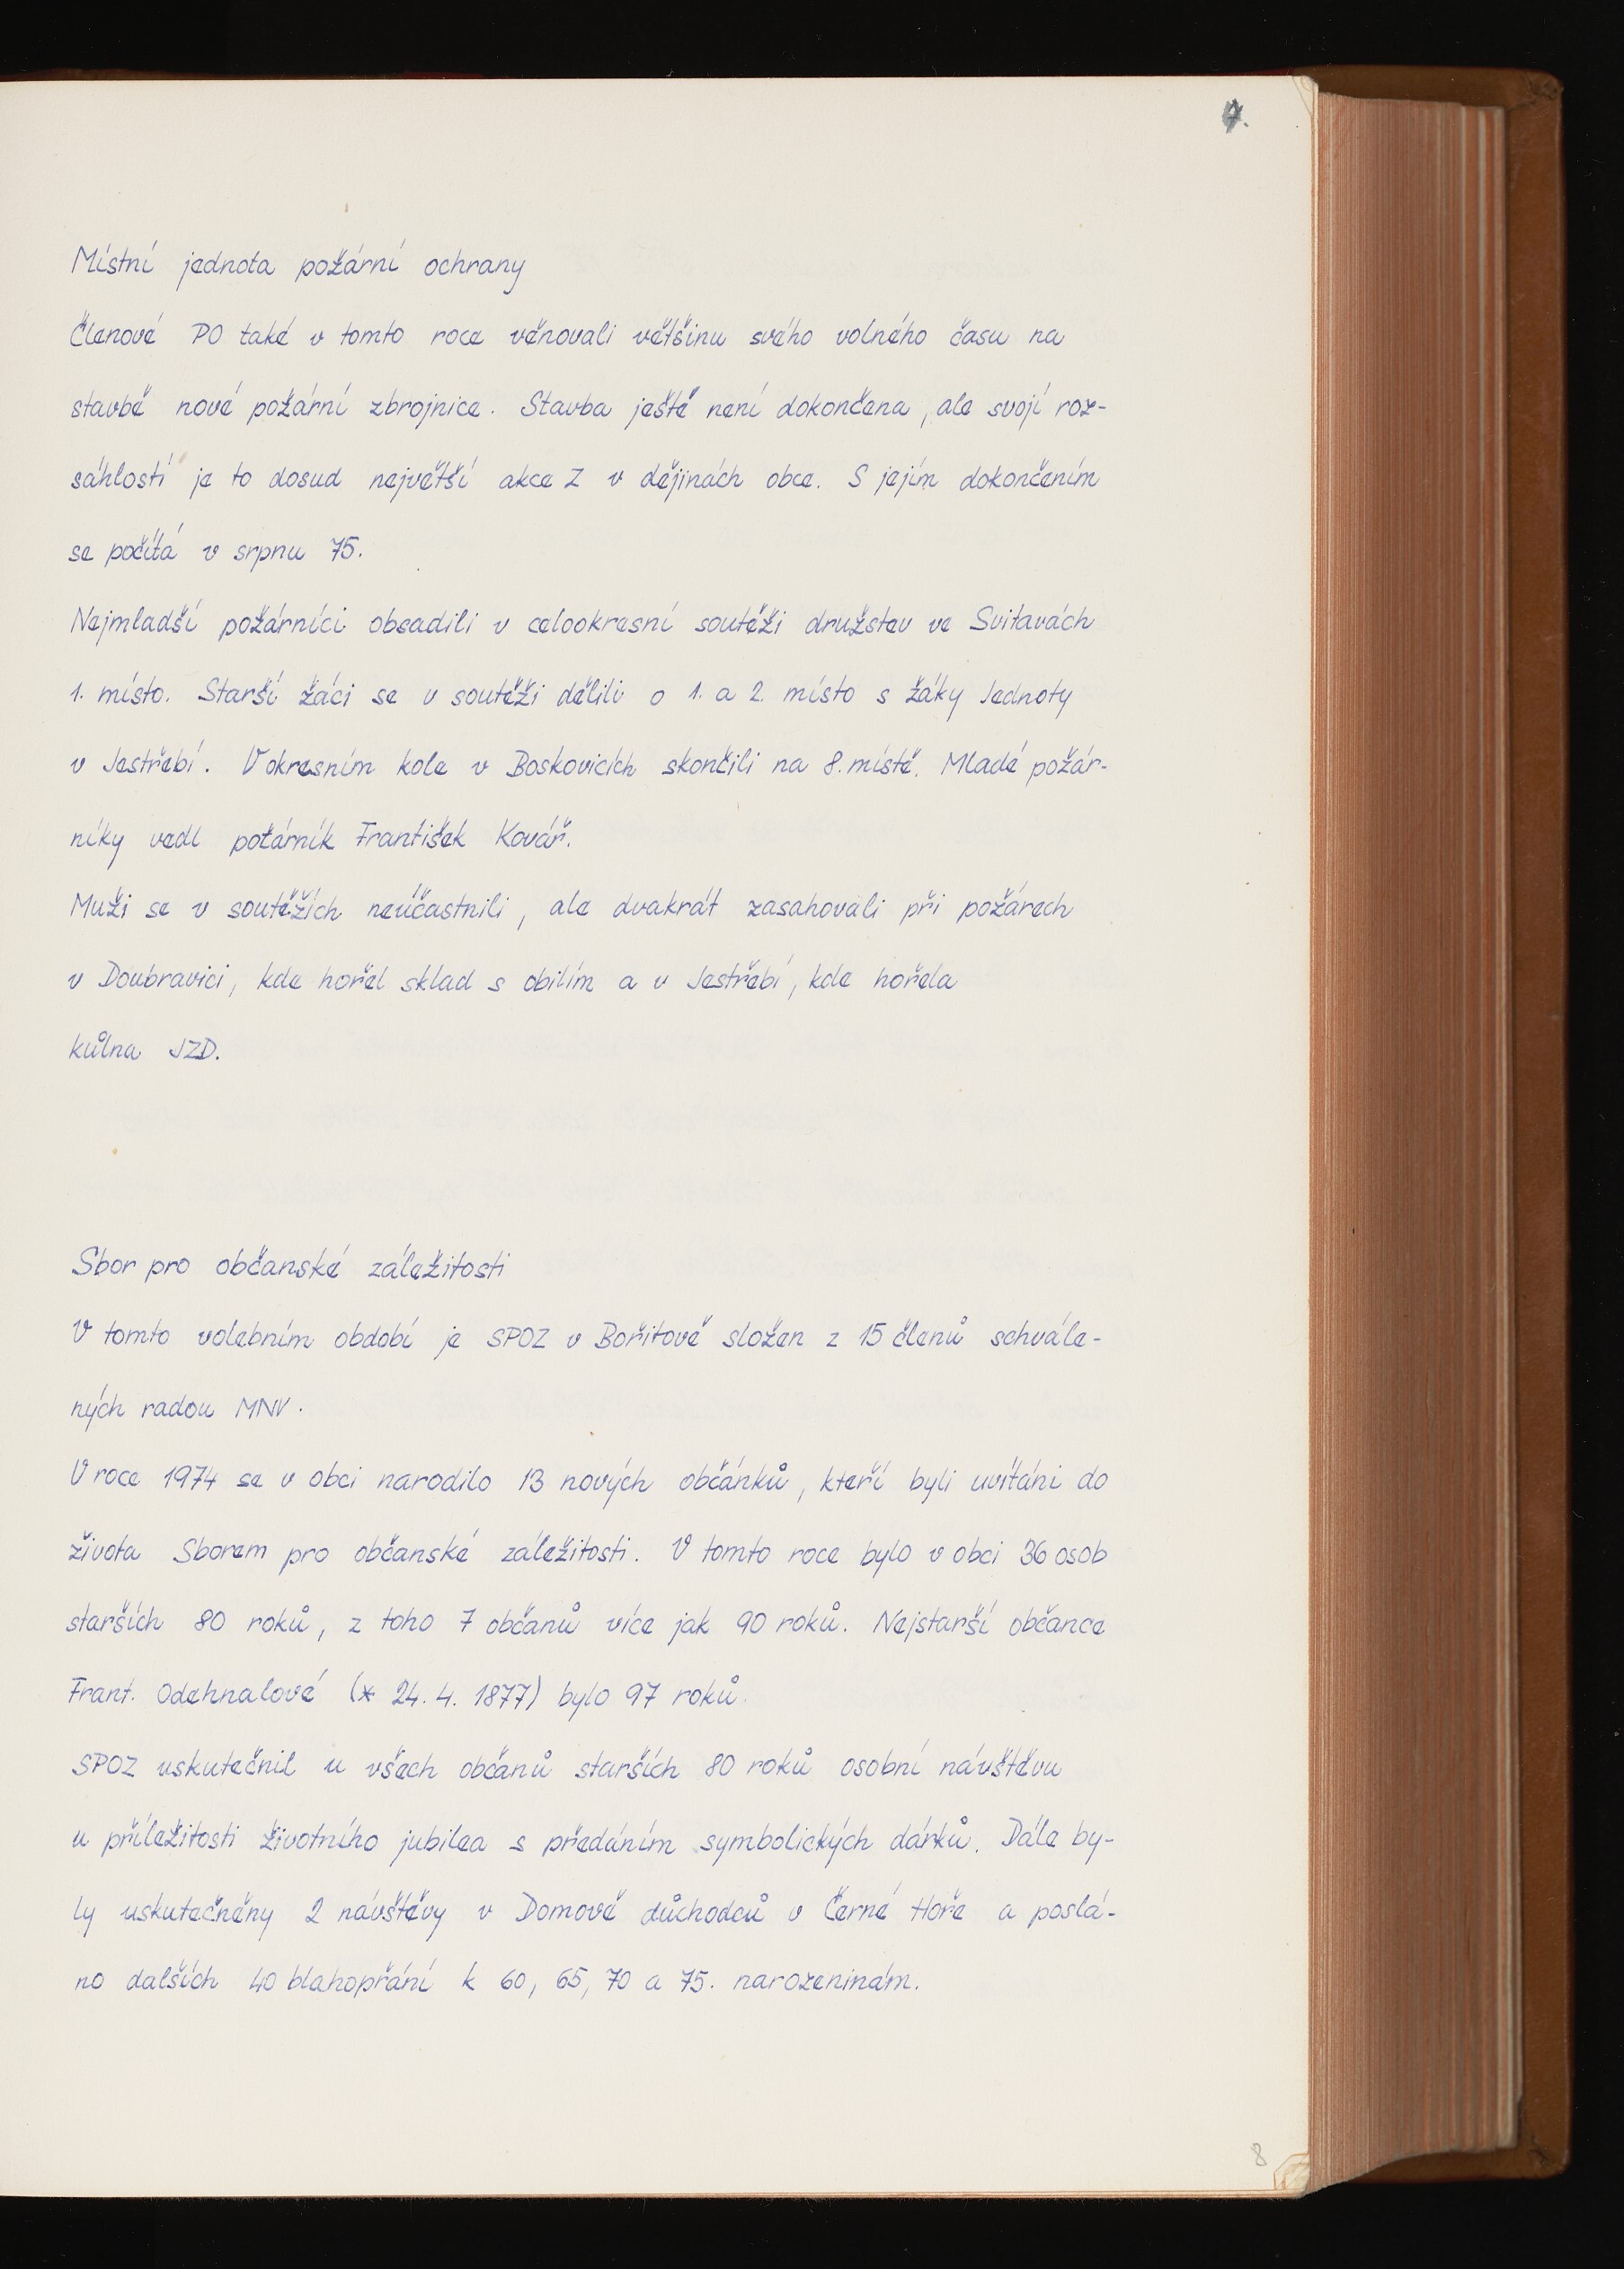 7.
Místní jednota požární ochrany
Členové PO také v tomto roce věnovali většinu svého volného času na
stavbě nové požární zbrojnice. Stavba ještě není dokončena, ale svojí roz-
sáhlostí je to dosud největší akce Z v dějinách obce. S jejím dokončením
se počítá v srpnu 75.
Nejmladší požárníci obsadili v celookresní soutěži družstev ve Svitavách
1. místo. Starší žáci se v soutěži dělili o 1. a 2. místo s žáky Jednoty
v Jestřebí. V okresním kole v Boskovicích skončili na 8. místě. Mladé požár-
níky vedl požárník František Kovář.
Muži se v soutěžích neúčastnili, ale dvakrát zasahovali při požárech
v Doubravici, kde hořel sklad s obilím a v Jestřebí, kde hořela
kůlna JZD.
Sbor pro občanské záležitosti
V tomto volebním období je SPOZ v Bořitově složen z 15 členů schvále-
ných radou MNV.
V roce 1974 se v obci narodilo 13 nových občánků, kteří byli uvítáni do
života Sborem pro občanské záležitosti. V tomto roce bylo v obci 36 osob
starších 80 roků, z toho 7 občanů více jak 90 roků. Nejstarší občance
Frant. Odehnalové (* 24. 4. 1877) bylo 97 roků.
SPOZ uskutečnil u všech občanů starších 80 roků osobní návštěvu
u příležitosti životního jubilea s předáním symbolických dárků. Dále by-
ly uskutečněny 2 návštěvy v Domově důchodců v Černé Hoře a poslá-
no dalších 40 blahopřání k 60, 65, 70 a 75. narozeninám.
8